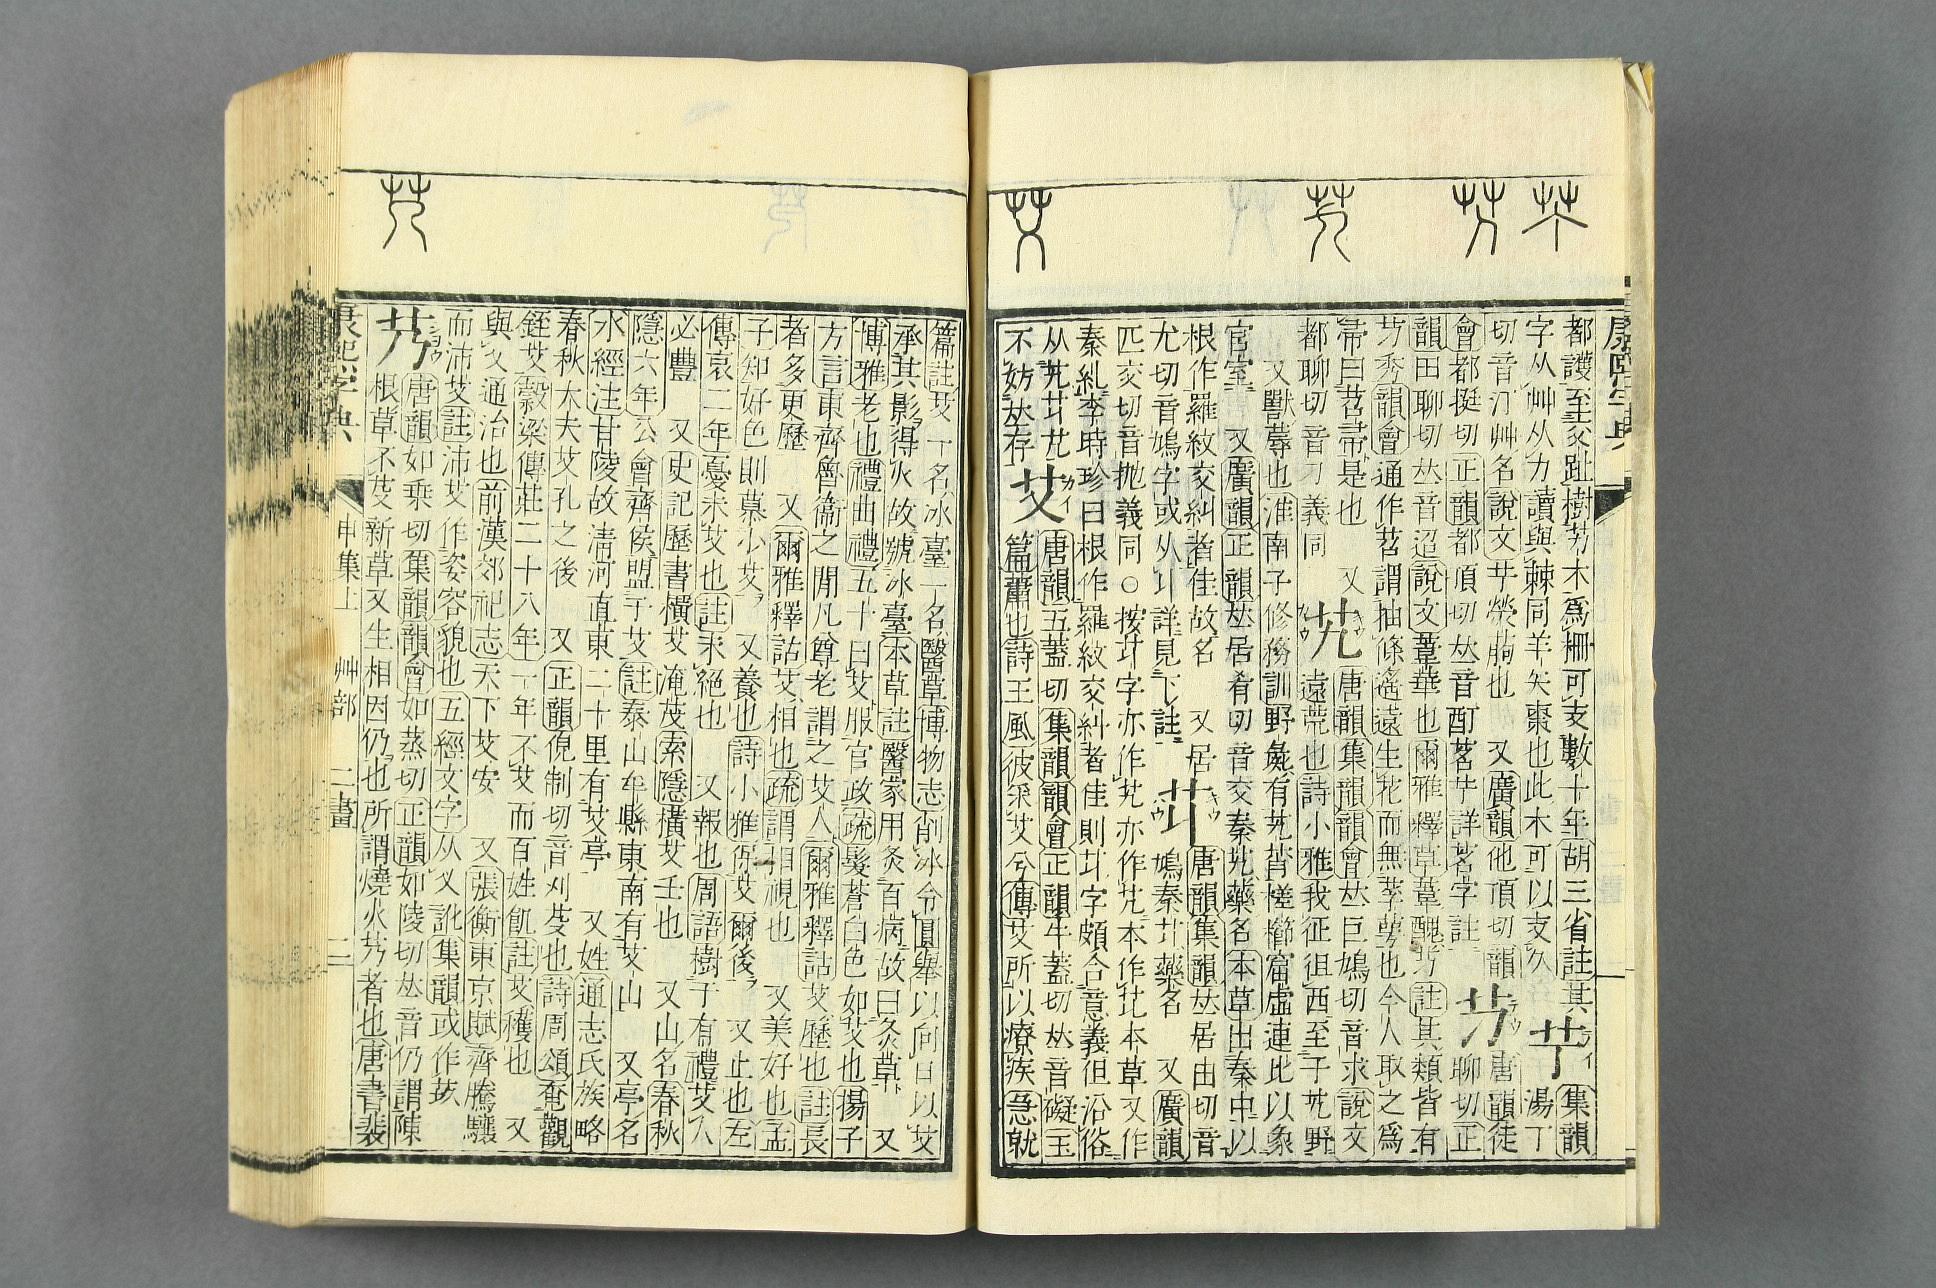 康熙字典
都護至交趾樹艻木爲柵可支數十年胡三省註其
字从艸从力讀與棘同羊矢棗也此木可以支久
艼 集韻湯丁
切音汀艸名說文艼熒朐也 又廣韻他頂切韻
會都挺切正韻都頂切𠀤音酊茗艼詳茗字註
芀 唐韻徒聊切正
韻田聊切𠀤音迢說文葦華也爾雅釋草葦醜芀註其類皆有
芀秀韻會通作苕謂抽條遙遠生花而無莩萼也今人取之爲
帚曰苕帚是也 又
都聊切音刀義同
艽 唐韻集韻韻會𠀤巨鳩切音求說文
遠荒也詩小雅我征徂西至于艽野
又獸蓐也淮南子修務訓野彘有艽莦槎櫛窟虛連比以象
宮室 又廣韻正韻𠀤居肴切音交秦艽藥名本草出秦中以
根作羅紋交糾者佳故名 又居
尤切音鳩字或从丩詳見下註
䒕 唐韻集韻𠀤居由切音
鳩秦䒕藥名 又廣韻
匹交切音抛義同 ○按䒕字亦作艽亦作芁本作䒕本草又作
秦糺李時珍曰根作羅紋交糾者佳則䒕字頗合意義但沿俗
从艽䒕芁
不妨𠀤存
艾 唐韻五蓋切集韻韻會正韻牛蓋切𠀤音礙玉
篇蕭也詩王風彼采艾兮傳艾所以療疾急就
篇註艾一名冰臺一名醫草博物志削冰令圓舉以向日以艾
承其影得火故號冰臺本草註醫家用灸百病故曰灸草 又
博雅老也禮曲禮五十曰艾服官政疏髮蒼白色如艾也揚子
方言東齊魯衞之閒凡尊老謂之艾人爾雅釋詁艾歷也註長
者多更歷 又爾雅釋詁艾相也疏謂相視也 又美好也孟
子知好色則慕少艾 又養也詩小雅保艾爾後 又止也左
傳哀二年憂未艾也註未絕也 又報也周語樹于有禮艾人
必豐 又史記歷書橫艾淹茂索隱橫艾壬也 又山名春秋
隱六年公會齊侯盟于艾註泰山牟縣東南有艾山 又亭名
水經注甘陵故淸河直東二十里有艾亭 又姓通志氏族略
春秋大夫艾孔之後 又正韻倪制切音刈芟也詩周頌奄觀
銍艾穀梁傳莊二十八年一年不艾而百姓飢註艾穫也 又
與乂通治也前漢郊祀志天下艾安 又張衡東京賦齊騰驤
而沛艾註沛艾作姿容貌也五經文字从乂訛集韻或作䓈
艿 唐韻如乗切集韻韻會如蒸切正韻如陵切𠀤音仍謂陳
根草不芟新草又生相因仍也所謂燒火艿者也唐書裴
康熙字典
申集上 艸部 二畫 二